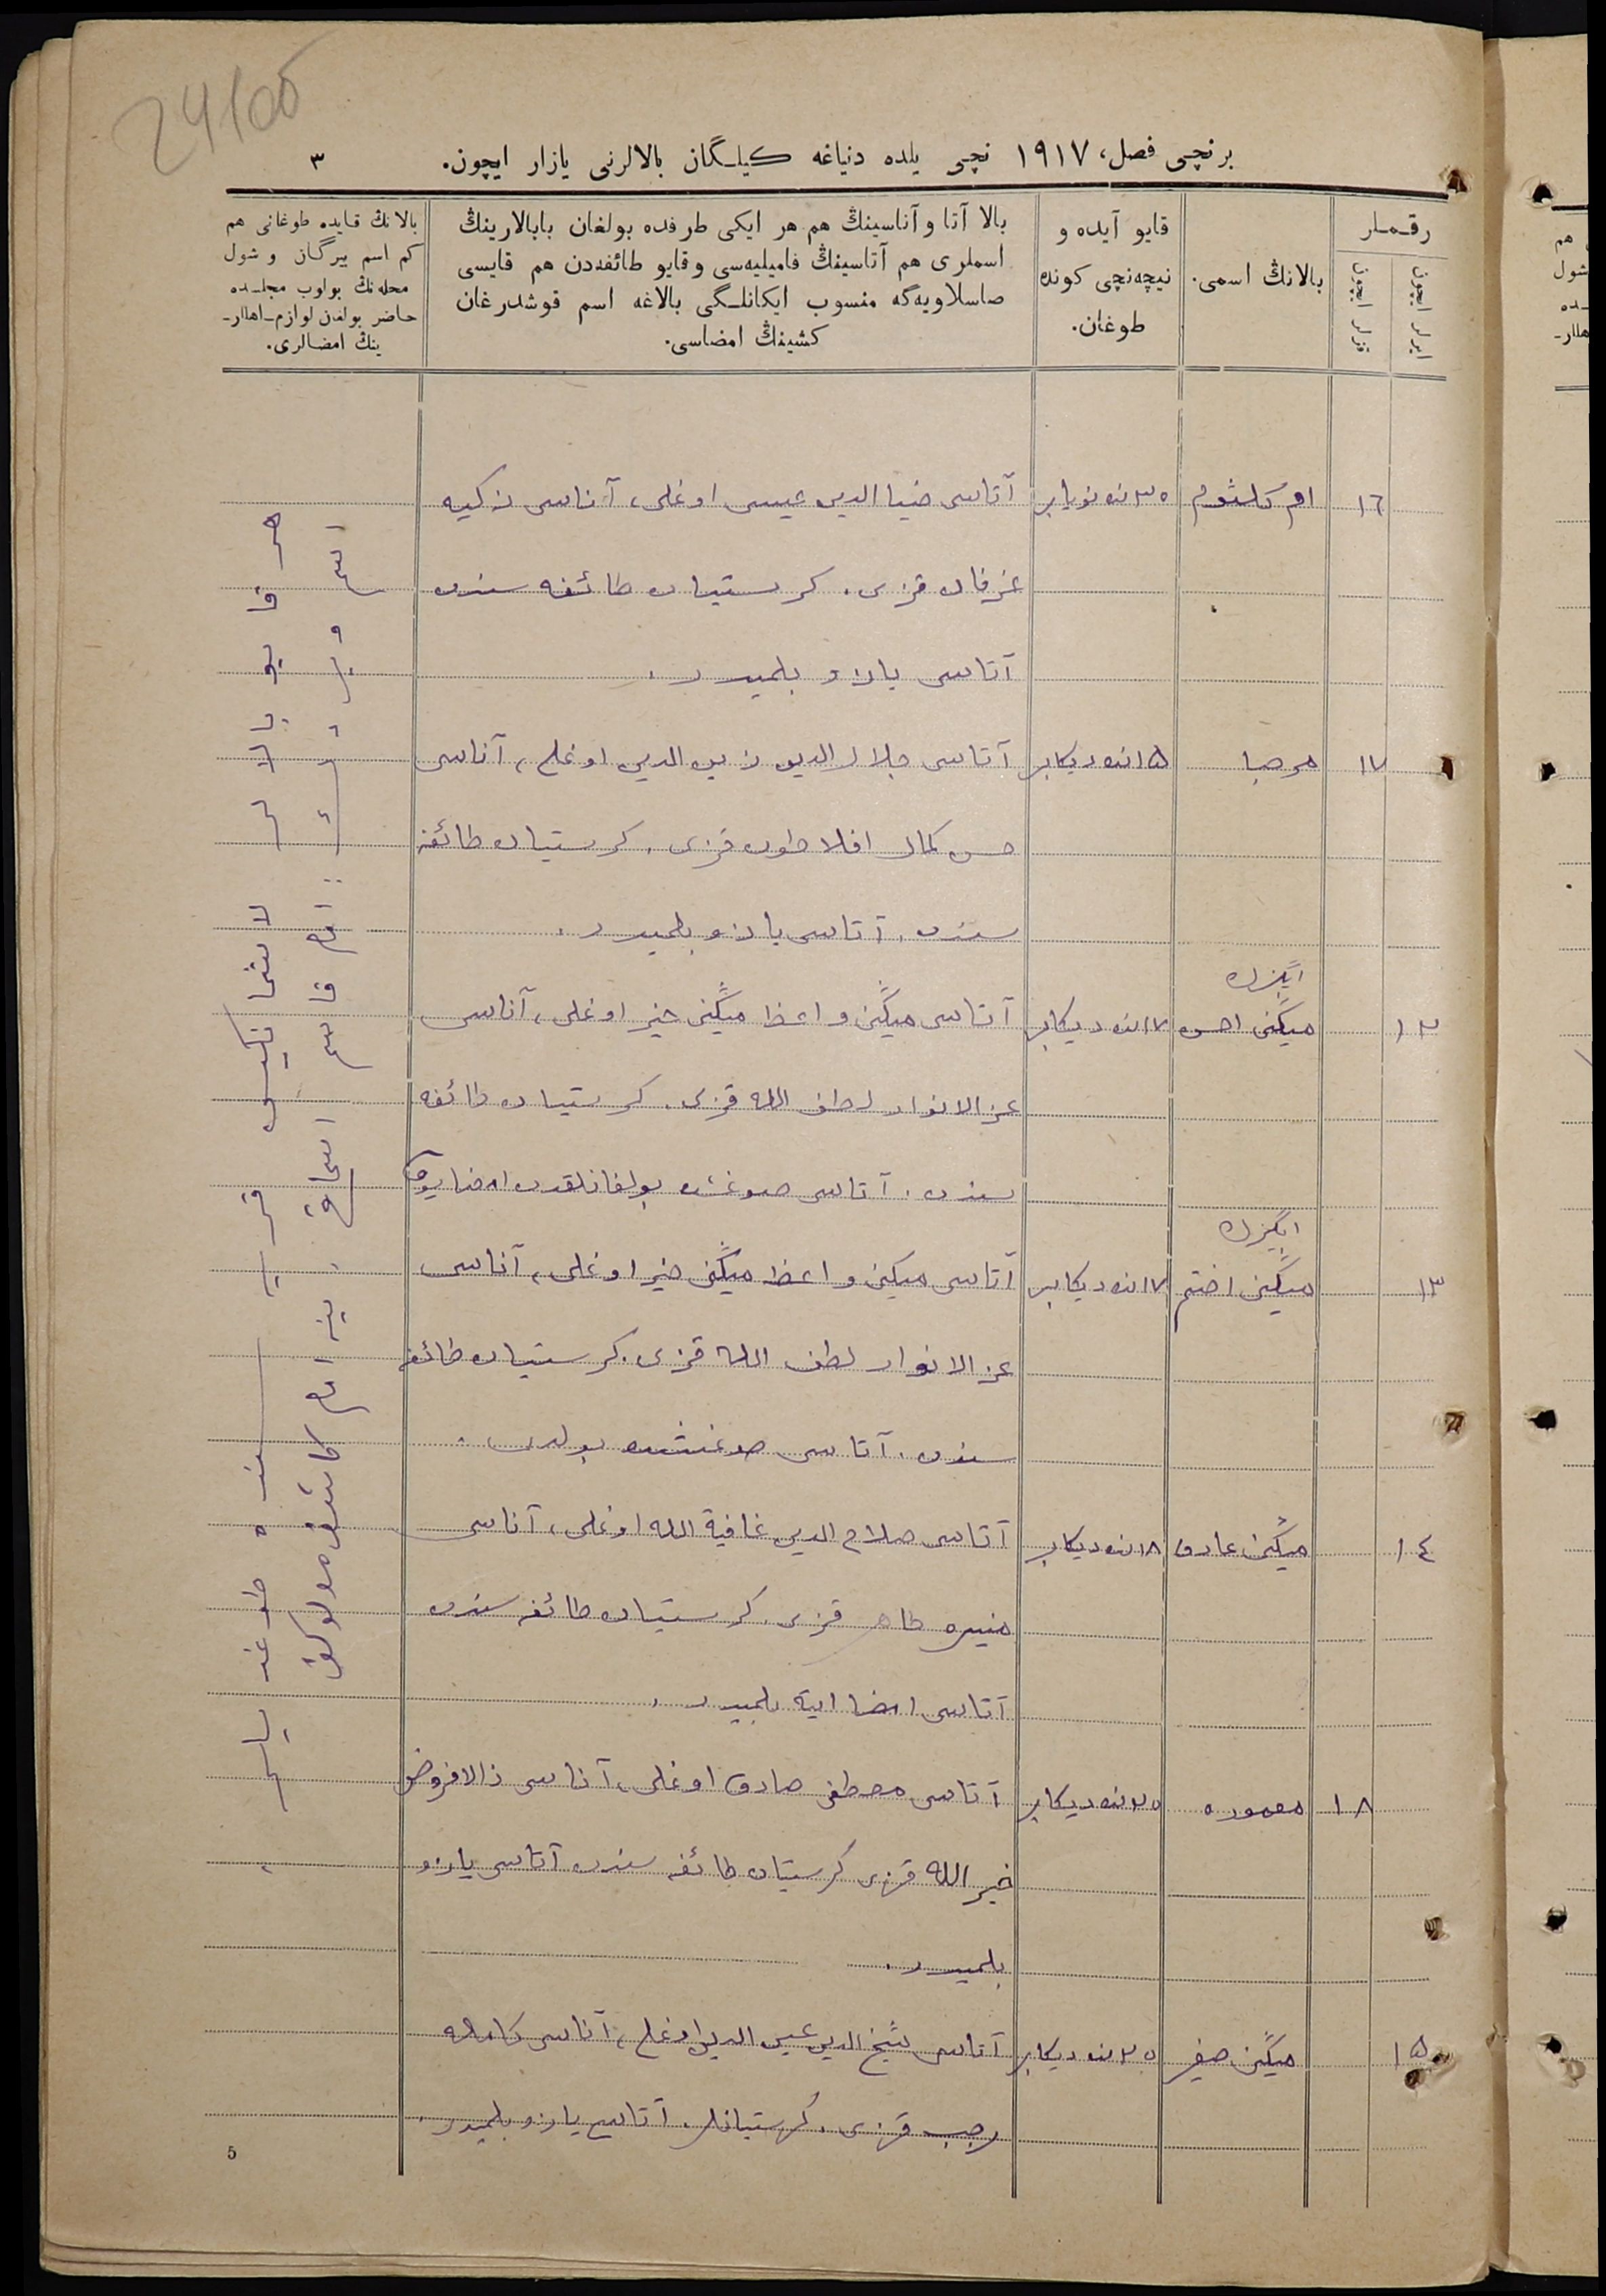 24100
برنچی فصل، ١٩١٧ نچی یلده دنیاغه کیلـگان بالالرنی یازار ایچون.
٣
رقـمـلر
ایرلر ایچون
قزلر ایچون
بالانڭ اسمی.
قایو آیده و
نیچه‌نچی کونده
طوغان.
بالا آتا و آناسینڭ هم هر ایکی طرفده بولغان بابالارینڭ
اسملری هم آتاسینڭ فامیلیه‌سی و قایو طائفه‌دن هم قایسی
صاسلاویه‌گه منسوب ایکانلـگی بالاغه اسم قوشدرغان
کشینڭ امضاسی.
بالانڭ قایده طوغانی هم
کم اسم بیرگان و شول
محله‌نڭ بولوب مجلـده
حاضر بولغن لوازم‌ـ‌اهللر‌ـ
ینڭ امضالری.
١٦ ام کلثوم ٣٠ نده نویابر آتاسی ضیا الدین عیسی اوغلی، آناسی زکیه
عرفان قزی. کرستیان طائفه سندن
آتاسی یازو بلمیدر.
١٧ مرحبا ١٥ نده دیکابر آتاسی جلال الدین زین الدین اوغلی، آناسی
حسن کمال افلاطون قزی. کرستیان طائفه
سندن. آتاسی یازو بلمیدر.
ایگزک
١٢ میڭنی احسن ١٧ نده دیکابر آتاسی میڭنی واعظ میڭنی خیر اوغلی، آناسی
عز الانوار لطف الله قزی. کرستیان طائفه
سندن. آتاسی صوغشده بولغانلقدن امضا یوق
ایگزک
١٣ میڭنی اختم ١٧ نده دیکابر آتاسی میکنی واعظ میڭنی خیر اوغلی، آناسی
عز الانوار لطف الله قزی. کرستیان طائفه
سندن. آتاسی صوغشده بولدی.
١٤ میڭنی عارف ١٨ نده دیکابر آتاسی صلاح الدین غافیة الله اوغلی، آناسی
منیره طاهر قزی. کرستیان طائفه سندن
آتاسی امضا ایته بلمیدر.
١٨ معموره ٢٥ نده دیکابر آتاسی مصطفی صادق اوغلی، آناسی
خیر الله قزی کرستیان طائفه سندن آتاسی یازو
بلمیدر.
١٥ میڭنی صغیر ٢٥ نده دیکابر آتاسی شیخ الدین عین الدین اوغلی، آناسی کامله
رجب قزی. کرستیانلر. آتاسی یازو بلمیدر.
5